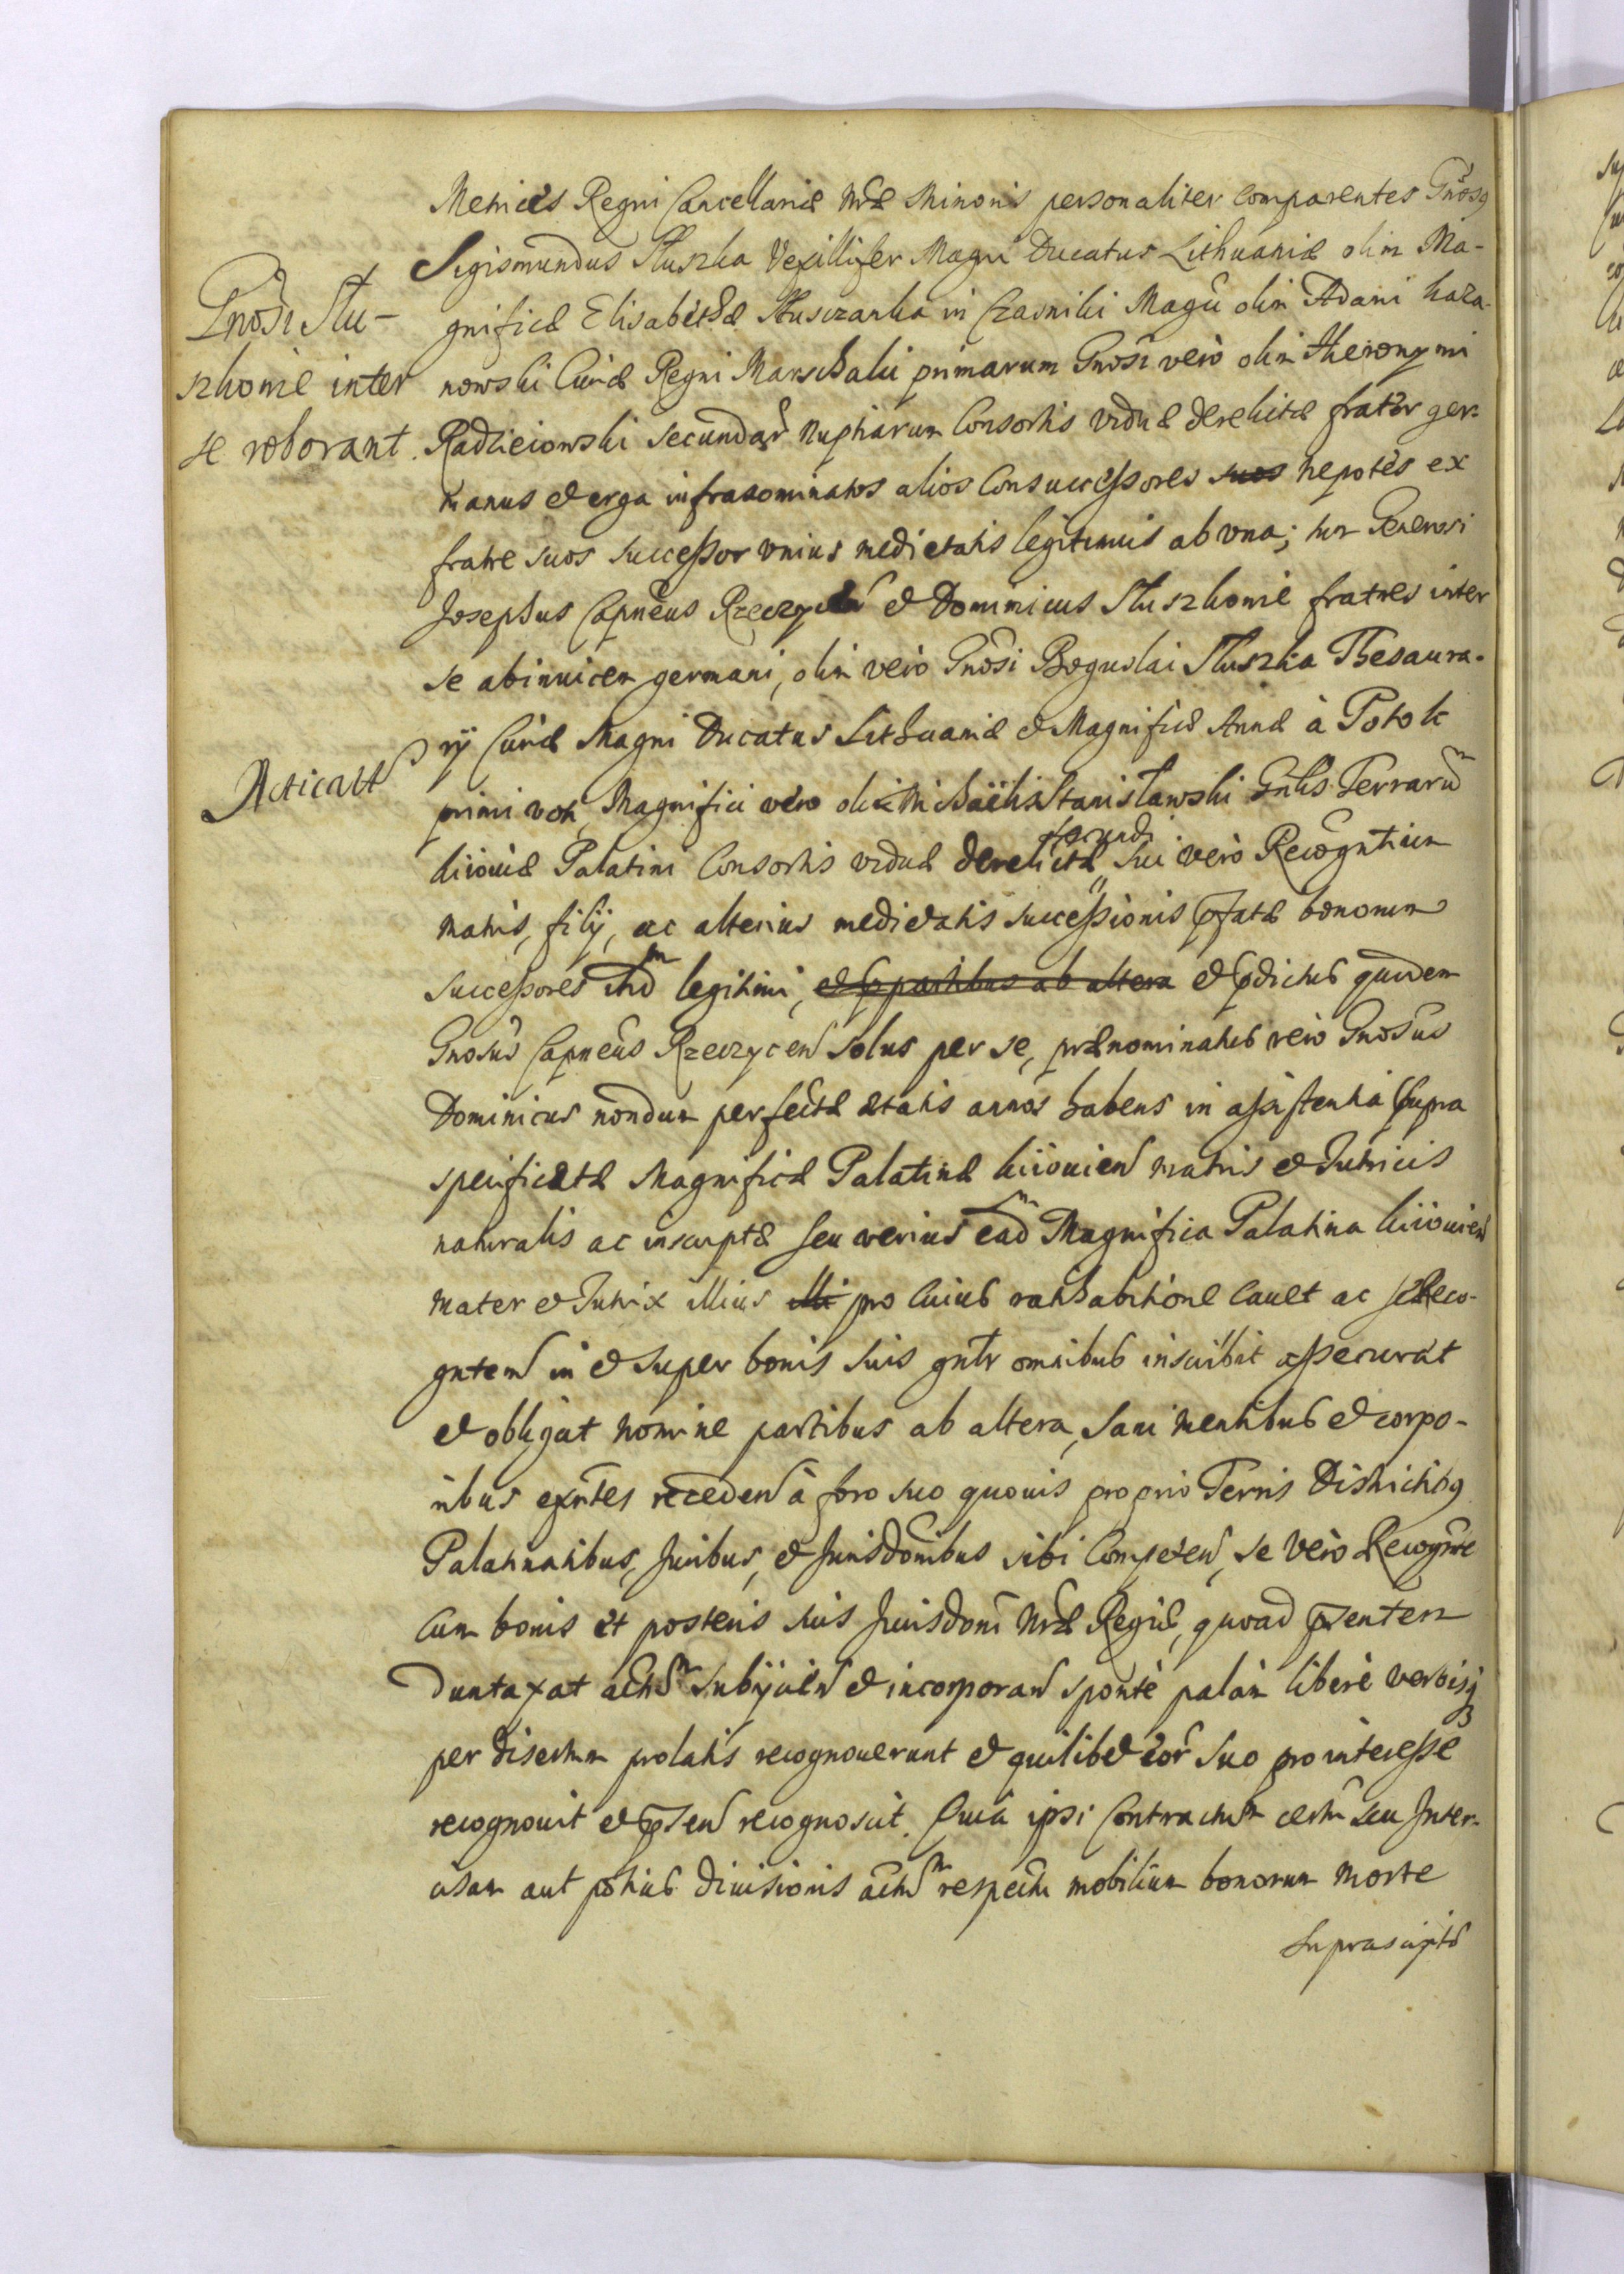 Metrices Regni Cancellariæ nræ Minoris personaliter comparentes Gnosq
Sigismundus Słuszka Vexillifer Magni Ducatus Lithuaniæ olim Ma-
gnificæ Elisabethæ Słusczanka in Czasniki Magci olim Adami Kaza-
nowski Curiæ Regni Marschalci primarum Gnosi vero olim Hieronymi
Radzieiowski secundar nuptiarum Consortis viduæ derelictæ frater ger-
manus et erga infranominatos alios Consuccessores suos nepotes ex
fratre suos successor unius medietatis legitimus ab una; tum Generosi
Josephus Capneus Rzeczycen et Dominicus Słuszkowie fratres inter
se abinuicem germani, olim vero Gnosi Boguslai Słuszka Thesaura-
rij Curiæ Magni Ducatus Lithuaniæ et Magnificæ Annæ à Potok
primi voti, Magnifici vero olim Michaëlis Stanisławski Gnlis Terrarum
kiiouiæ Palatini Consortis viduæ derelictæ secundi sui vero Recogntium
matris, filij, ac alterius medietatis successionis pfatæ bonorum
successores itid legitimi, et p partibus ab altera et pdictus quidem
Gnosus Capneus Rzeczycen solus per se, prænominatus vero Gnosus
Dominicus nondum perfectæ ætatis annos habens in assistentia supra
specificatæ Magnificæ Palatinæ kiiouien matris et Tutricis
naturalis ac inscriptæ seu verius ead Magnifica Palatina kiiouien
mater et Tutrix illius illi pro cuius ratihabitione cauet ac se Reco-
gnten in et super bonis suis gntr omnibus inscribit assecurat
et obligat nomine partibus ab altera, sani mentibus et corpo-
ribus exntes receden à foro suo quouis proprio Terris Districtibq
Palatinatibus, Juribus, et Jurisdonibus sibi Competen, se vero Recognte
cum bonis et posteris suis Jurisdoni nræ Regiæ, quoad prentem
duntaxat actum subijcien et incorporan sponte palàm liberè verbisq
per disertum prolatis recognouerunt et quilibet eor suo pro interesse
recognouit et p sen recognoscit. Quia ipsi Contractum certum seu Inter-
cisam aut potius diuisionis actum respectu mobilium bonorum morte
suprascriptæ
Gnosi Słu-
szkowie inter
se roborant.
Acticatt